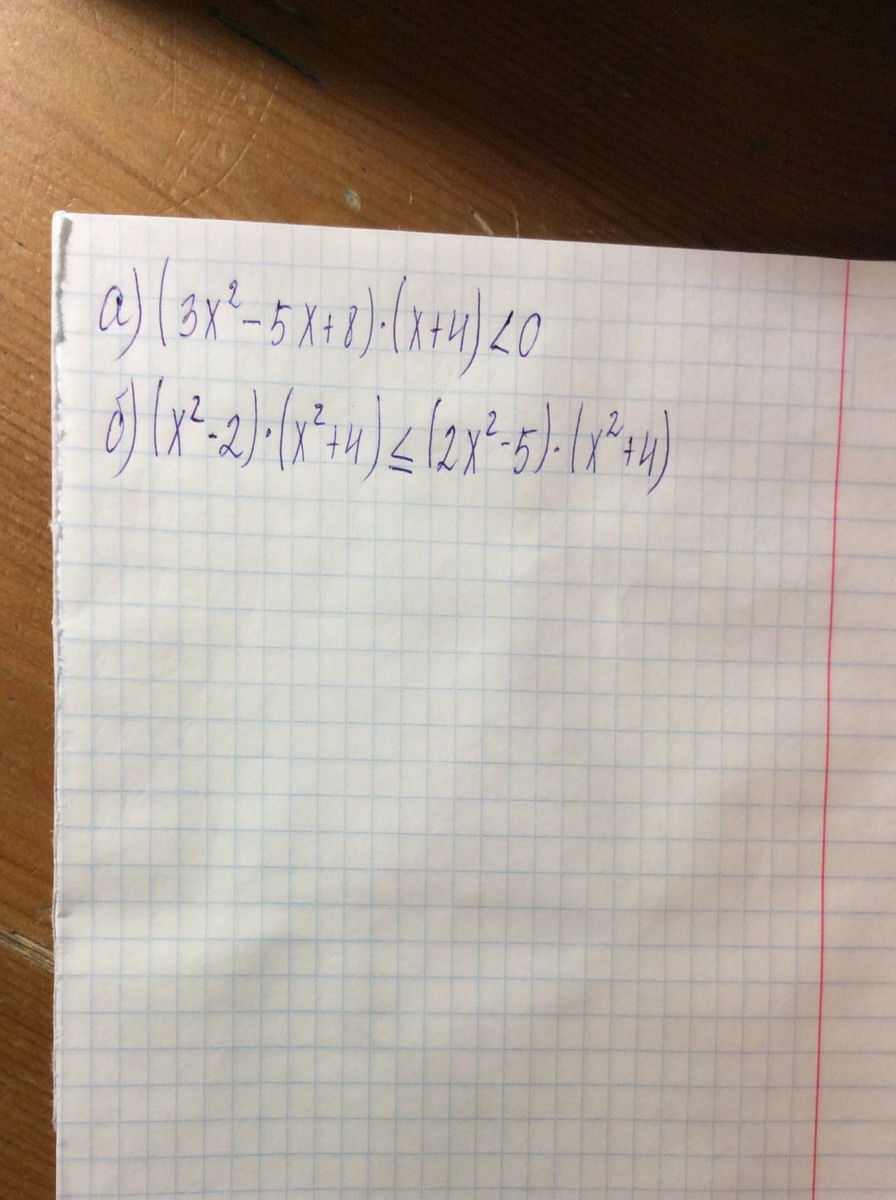 а) (3x² - 5x + 8) · (x + 4) < 0
б) (x² - 2) · (x² + 4) ≤ (2x² - 5) · (x² + 4)